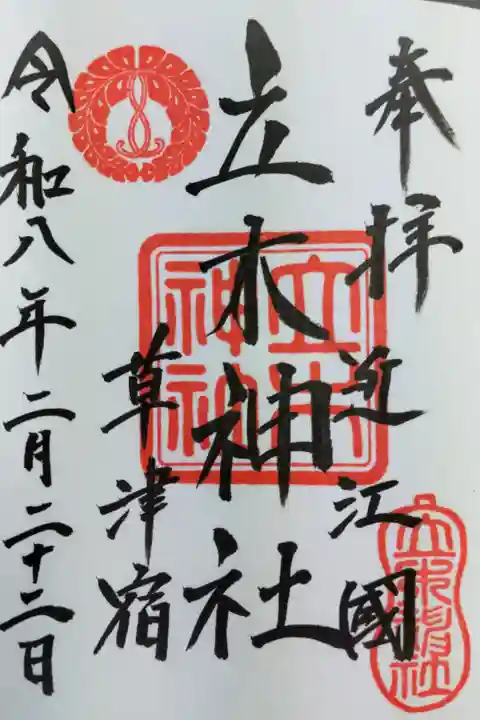 奉拝
近江國
立木神社
草津宿
令和八年二月二十二日
立木神社